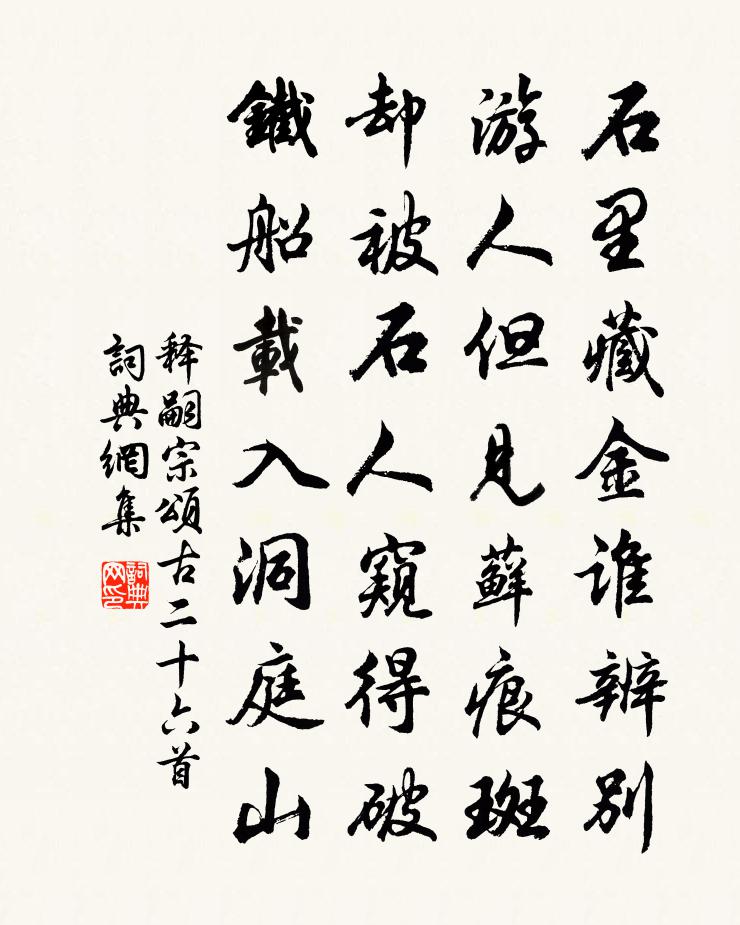 石里藏金谁辨别
游人但见藓痕斑
却被石人窥得破
鐵船載入洞庭山
释嗣宗頌古二十六首
詞典網集
詞典
网印